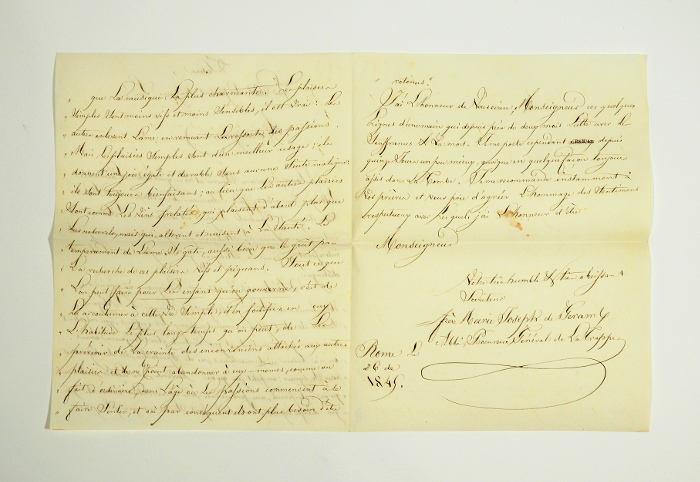 que La musique La plus charmante. Les plaisirs
Simples Sont moins vifs et moins Sensibles, il est Vrai: Les
autres enlevent L'ame en remuant Les ressorts des passions.
Mais Les plaisirs Simples sont d'un meilleur usage; ils
donnent une joie égale et durable Sans aucune Suite maligne
ils sont toujours bienfaisans; au lieu que Les autres plaisirs
Sont comme Les Vins frelatés, qui plaisent d'abord plus que
Les naturels, mais qui alterent et nuisent à La Santé. Le
temperament de L'ame Se gâte, aussi bien que le goût par
La recherche de ces plaisirs Vifs et piquans. Tout ce que
L'on peut faire pour Les enfans qu'on gouverne, c'est de
Les accoutumer à cette vie Simple, d'en fortifier en eux
L'habitude Le plus Long temps qu'on peut, de Les
prévenir de La crainte des inconvéniens attachés aux autres
plaisirs et de ne point abandonner à eux-mêmes, comme on
fait d'ordinaire, dans L'âge où Les passions commencent à Se
faire Sentir, et où par conséquent ils ont plus besoin d'être
retenus.
J'ai L'honneur de Monseigneur, ces quelques
Lignes d'un mourant qui depuis près de deux mois Lutte avec Les
Souffrances et La mort. Un cependant depuis
quinze Jours un peu mieux, quoique en quelque façon toujours
assis dans La Tombe. Je me recommande instamment à
Vos prières et Vous prie d'agréer L'hommage des Sentimens
respectueux avec Lesquels j'ai L'honneur d'être
Monseigneur
Votre très humble & très obéissant
Serviteur
frère Marie Joseph de Géramb
Abbé Procureur Général de La Trappe
Rome Le
26 de
1845.